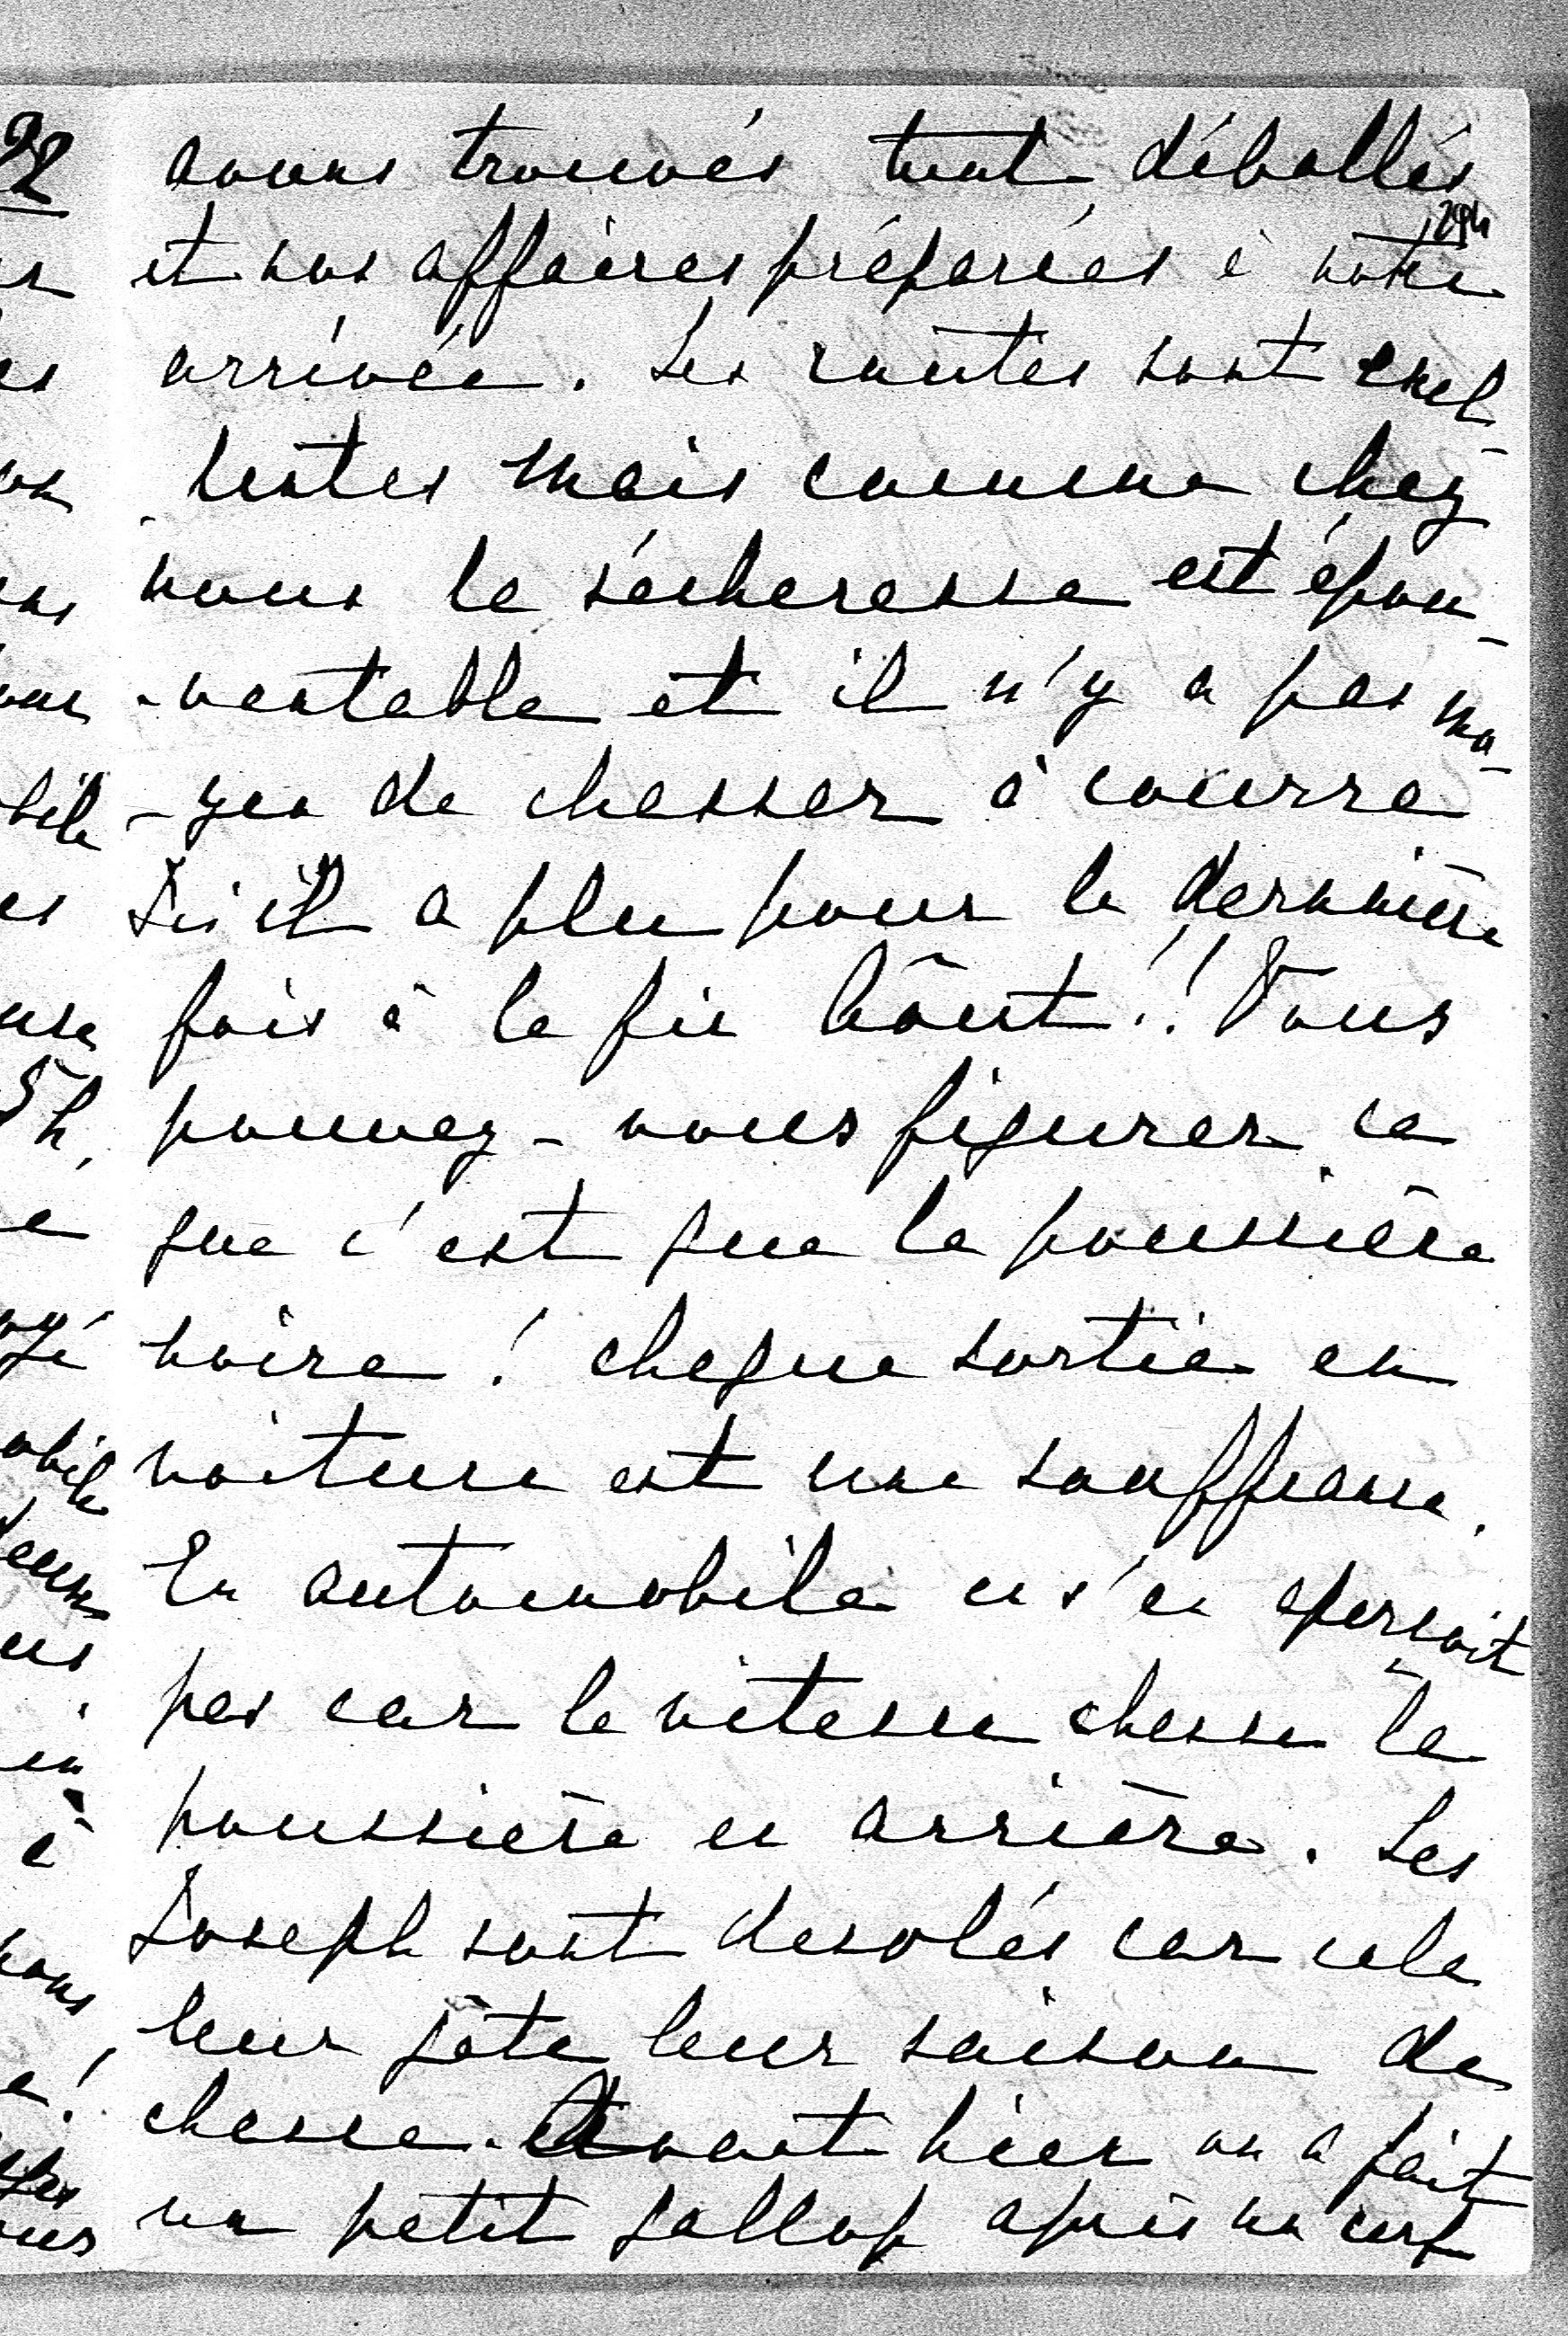 avons trouvés tout déballés
et nos affaires préparées à notre
arrivée. Les routes sont exel-
lentes mais comme chez
nous la sécheresse est épou-
-ventable et il n'y a pas mo-
-yen de chasser à courre
Ici il a plu pour la dernière
fois à la fin Août!! Vous
pouvez-vous figurer ce
que c'est que la poussière
noire! chaque sortie en
voiture est une souffrance.
En automobile on s'en aperçoit
pas car la vitesse chasse la
poussière en arrière. Les
Joseph sont desolés car cela
leur gâte leur saison de
chasse. Avant hier on a fait
un petit gallop après un cerf